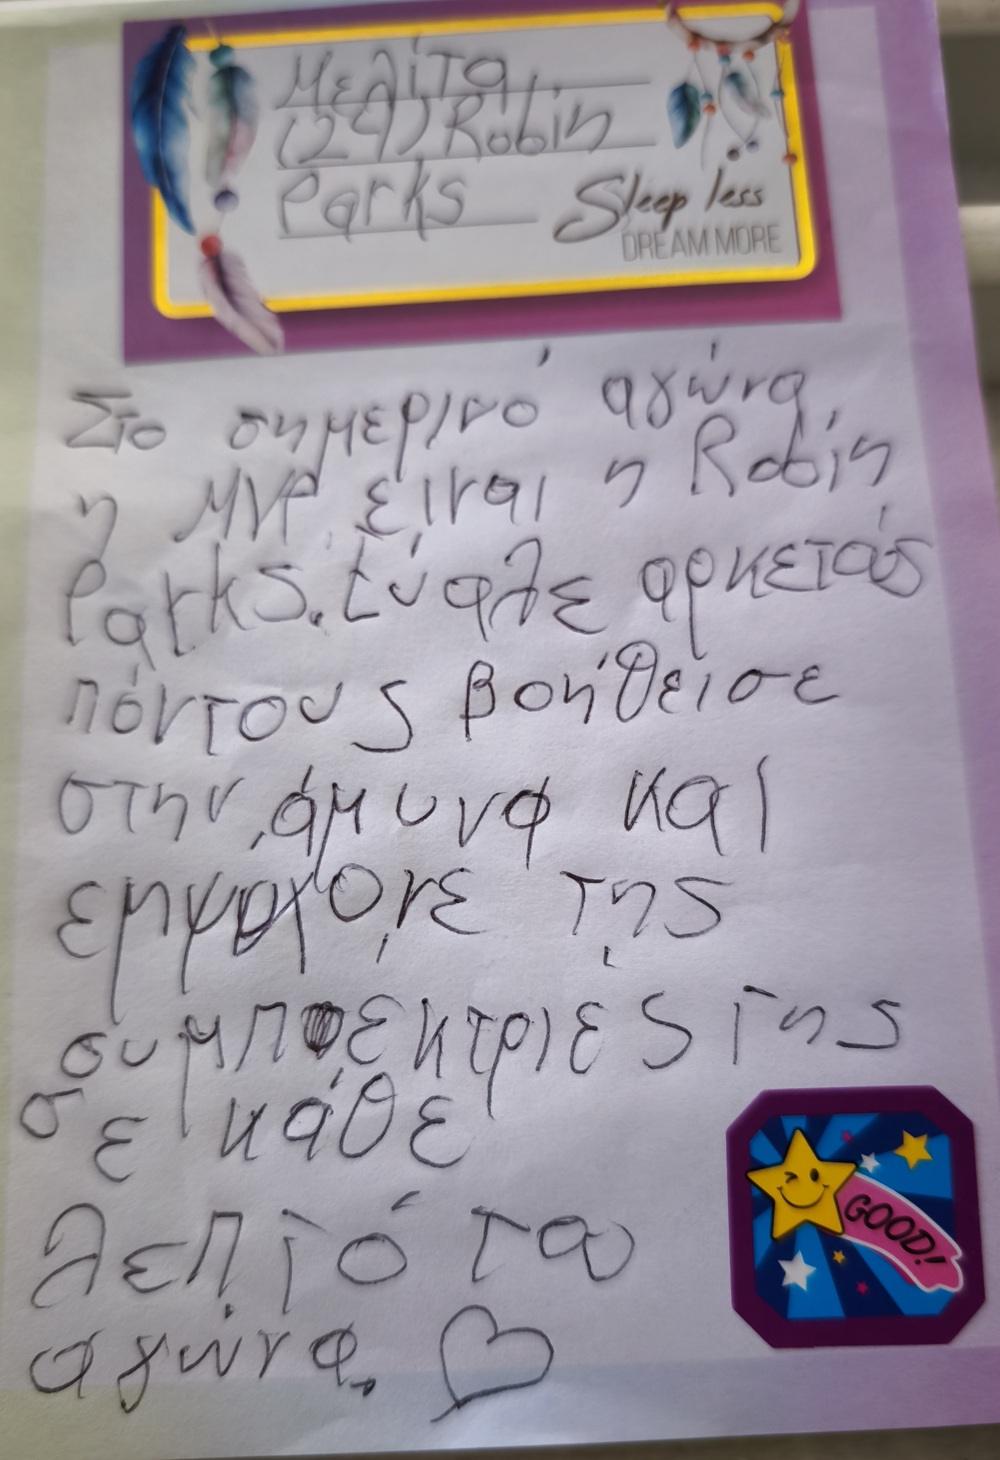 Μελίτα
(24) Robin
Parks
Sleep less
DREAM MORE
Στο σημερινό αγώνα
η MVP είναι η Robin
Parks. Εύαλε αρκετάς
πόντους βοήθεισε
στην άμυνα και
εμψύχονε της
συμπεκτριές της
σε κάθε
λεπτό του
αγώνα.
GOOD!